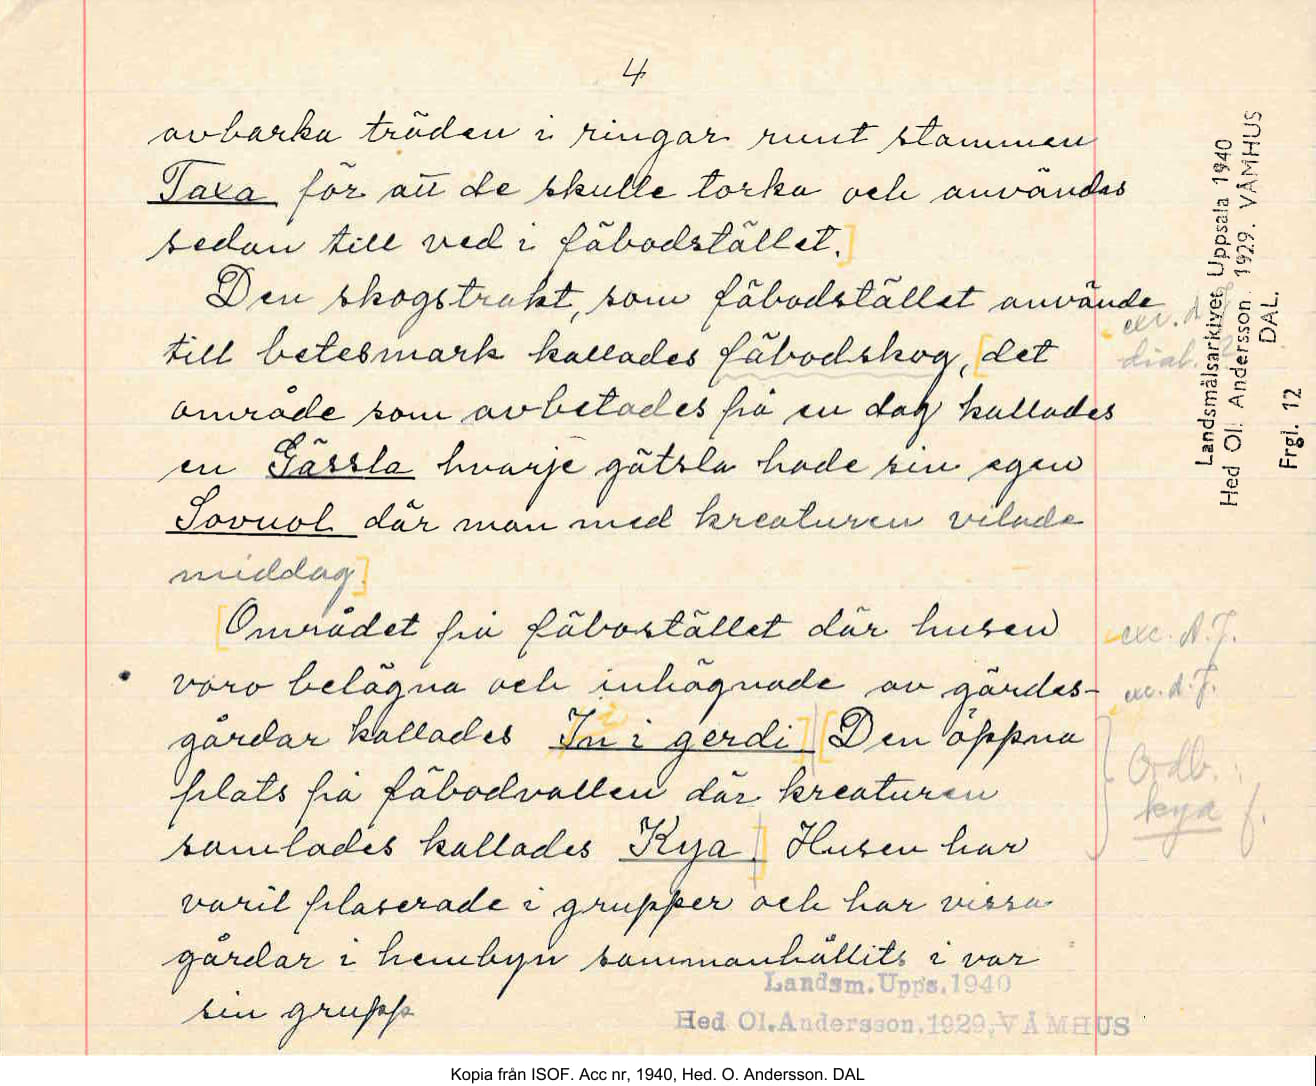 4
avbarka träden i ringar runt stammen
Taxa för att de skulle torka och användes
sedan till ved i fäbodstället.]
Den skogstrakt, som fäbodstället använde
till betesmark kallades fäbodskog, [det
område som avbetades på en dag kallades
en Gässla hvarje gätsla hade sin egen
Sovuol där man med kreaturen vilade
middag]
[Området på fäbostället där husen
voro belägna och inhägnade av gärdes-
gårdar kallades In i gerdi] [Den öppna
plats på fäbodvallen där kreaturen
samlades kallades Kya] Husen har
varit plaserade i grupper och har vissa
gårdar i hembyn sammanhållits i var
sin grupp
exc. d.
dial.
exc. d. J.
exc. d. J.
Ordb.
kya f.
Landsmålsarkivet Uppsala 1940
Hed Ol. Andersson. 1929. VÅMHUS
DAL.
Frgl. 12
Landsm. Upps. 1940
Hed Ol. Andersson. 1929. VÅMHUS
Kopia från ISOF. Acc nr, 1940, Hed. O. Andersson. DAL